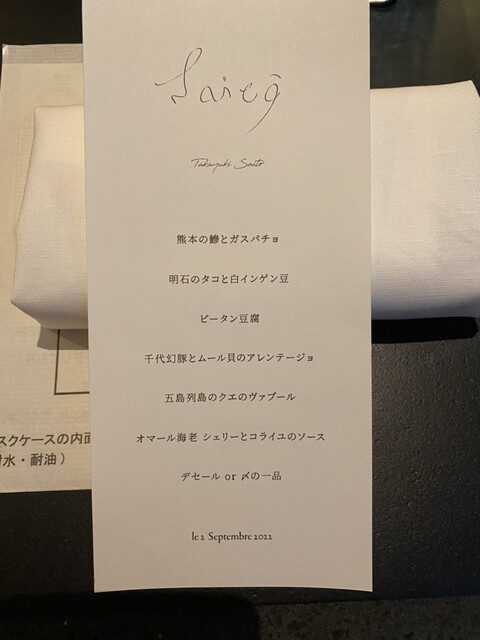 Takayuki Saito
熊本の鰺とガスパチョ
明石のタコと白インゲン豆
ピータン豆腐
千代幻豚とムール貝のアレンテージョ
五島列島のクエのヴァプール
オマール海老 シェリーとコライユのソース
デセール or 〆の一品
le 2 Septembre 2022
スクケースの内面
耐水・耐油）